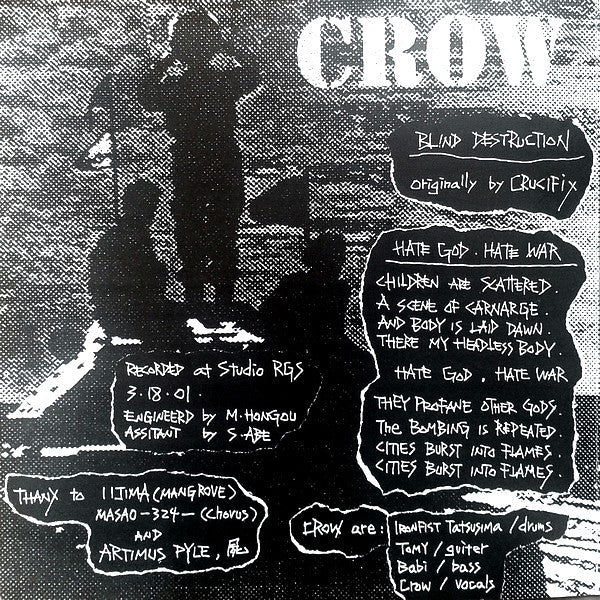 CROW
BLIND DESTRUCTION
originally by CRUCIFIX
HATE GOD . HATE WAR
CHILDREN ARE SCATTERED.
A SCENE OF CARNARGE.
AND BODY IS LAID DAWN.
THERE MY HEADLESS BODY.
HATE GOD , HATE WAR
THEY PROFANE OTHER GODS.
The BOMBING is REPEATED.
CITIES BURST INTO FLAMES
CITIES BURST INTO FLAMES
RECORDED at Studio RGS
3.18.01.
ENGINEERD by M.HONGOU
ASSITANT by S.ABE
THANX to IIJIMA (MANGROVE)
MASAO-324-(Chorus)
AND
ARTIMUS PYLE,
CROW are: IRONFIST TATSUSIMA / drums
TOMY / guiter
Babi / bass
Crow / vocals